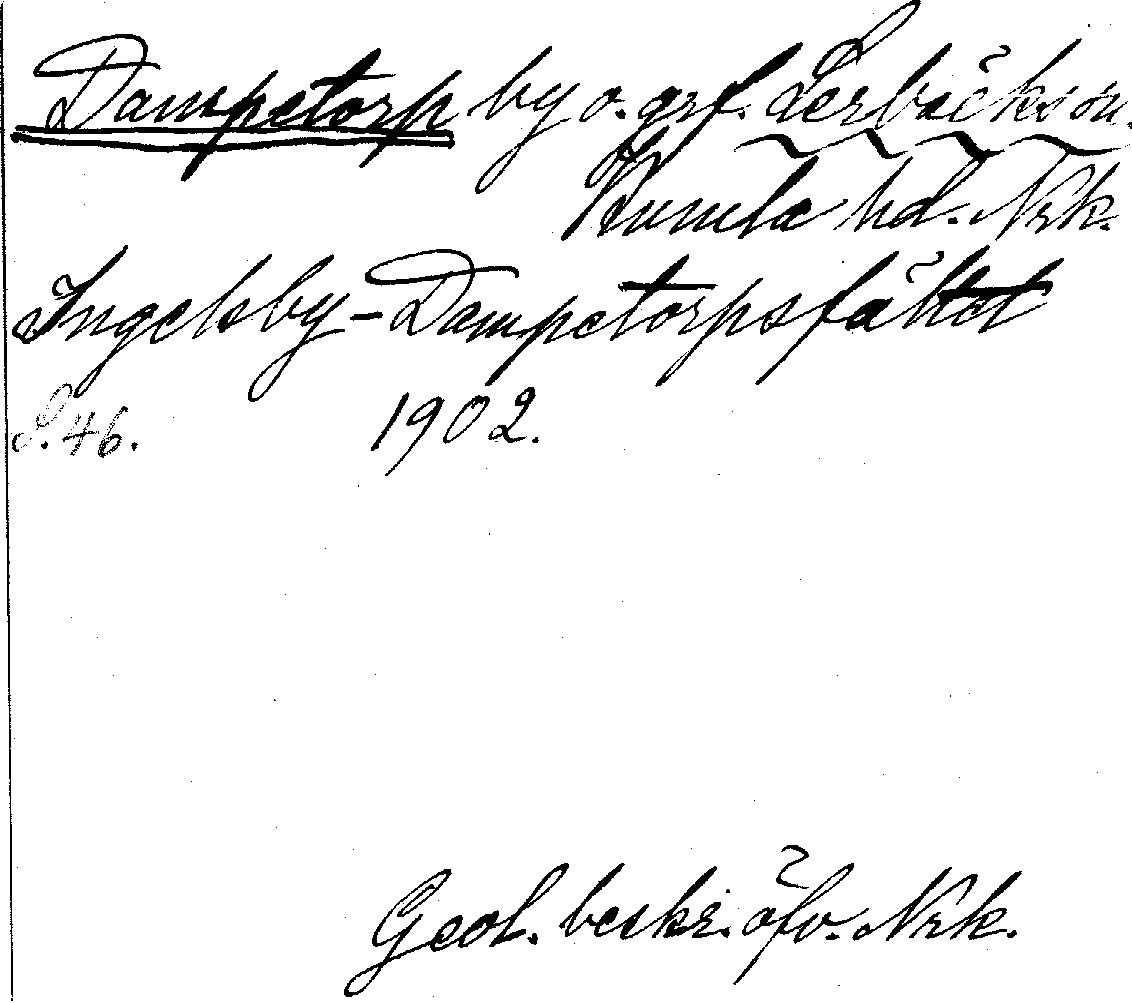 Dampetorp by o. grf. Lerbäcks sn.
Kumla hd. Nrk.
Ingelsby-Dampetorpsfältet
S. 46. 1902.
Geol. beskr. öfv. Nrk.